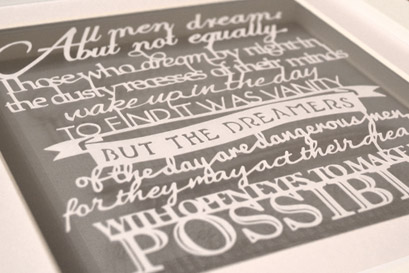 All men dream
but not equally
Those who dream by night in
the dusty recesses of their minds
wake up in the day
TO FIND IT WAS VANITY
BUT THE DREAMERS
of the day are dangerous men
for they may act their drea
WITH OPEN EYES TO MAKE
POSSIBL